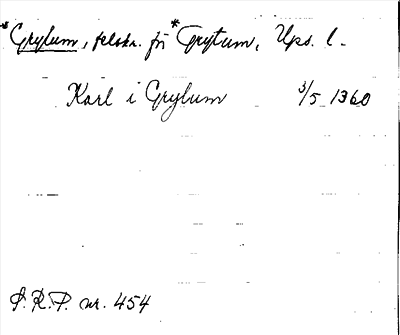 *Grylum, felskr. för *Grytum, Ups. l.
Karl i Grylum 3/5 1360
S.R.P. nr. 454